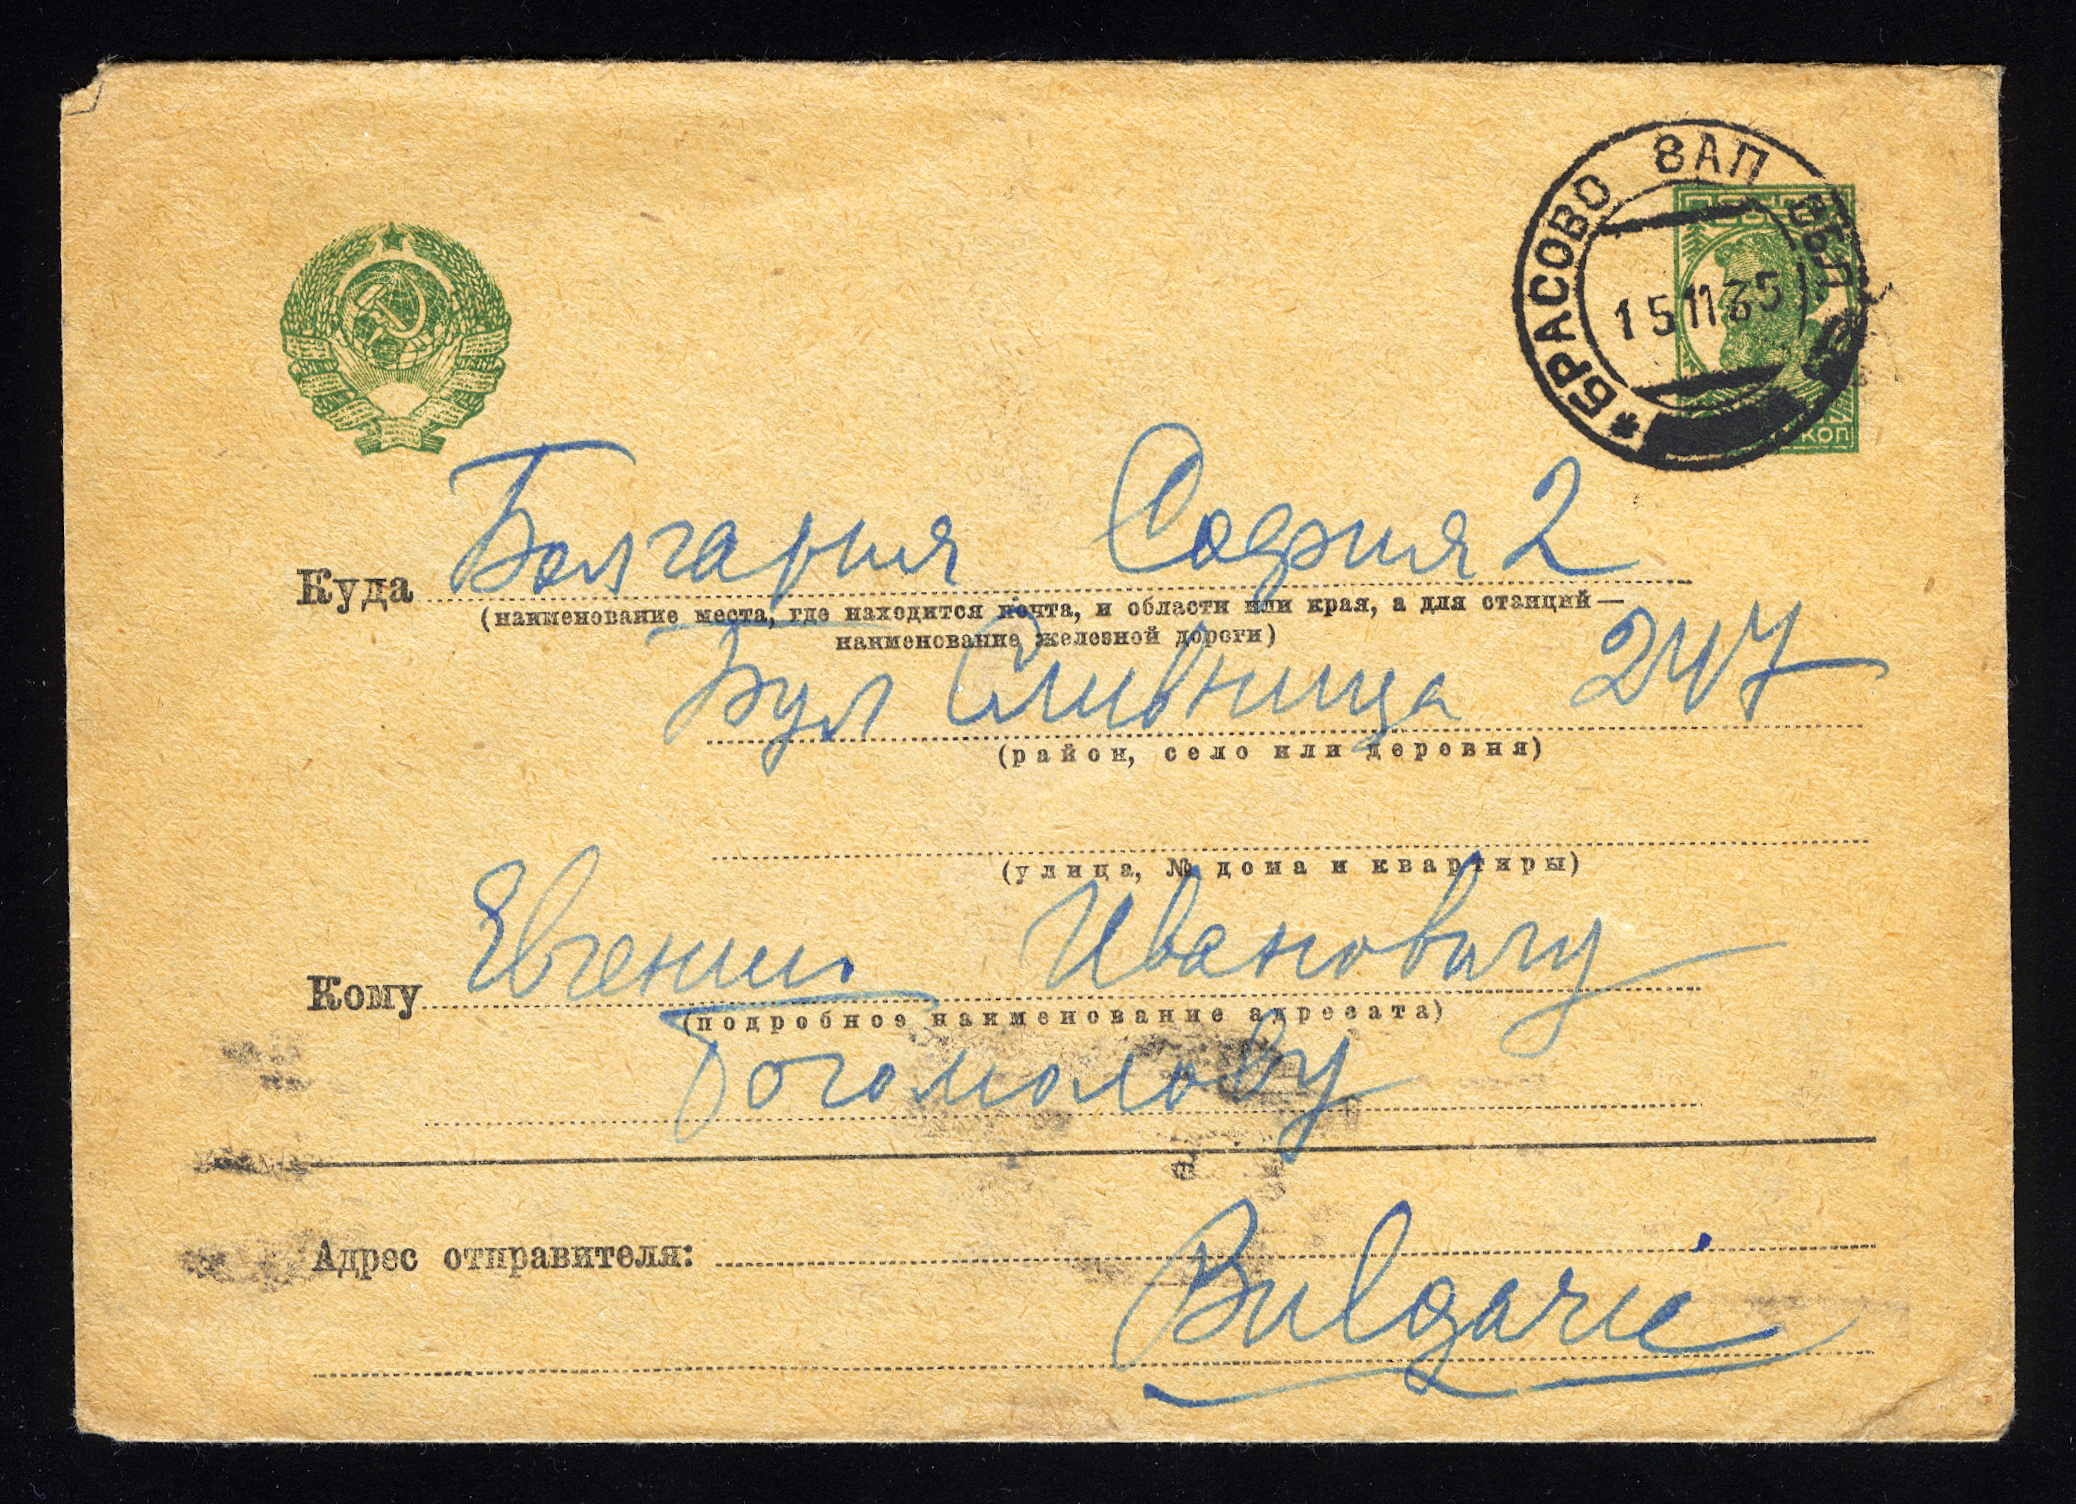 БРАСОВО ЗАП ОБЛ
15 11 35
КОП
Болгария София 2
Куда
(наименование места, где находится почта, и области или края, а для станций—
наименование железной дороги)
Бул Сливница 247
(район, село или деревня)
(улица, № дома и квартиры)
Евгению Ивановичу
Кому
(подробное наименование адресата)
Богомолову
Адрес отправителя:
Bulgarie